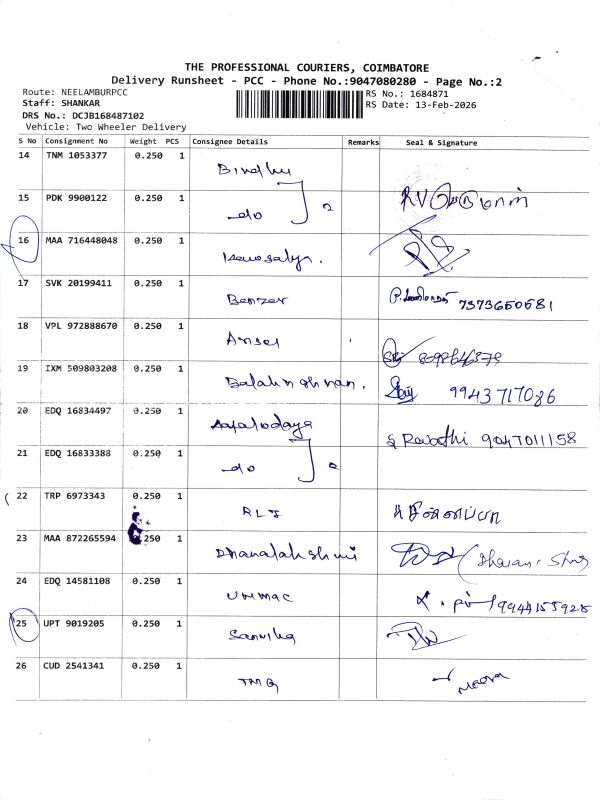 THE PROFESSIONAL COURIERS, COIMBATORE
Delivery Runsheet - PCC - Phone No.:9047080280 - Page No.:2
Route: NEELAMBURPCC
RS No.: 1684871
Staff: SHANKAR
RS Date: 13-Feb-2026
DRS No.: DCJB168487102
Vehicle: Two Wheeler Delivery
S No Consignment No Weight PCS Consignee Details Remarks Seal & Signature
14 TNM 1053377 0.250 1 Bindhu
15 PDK 9900122 0.250 1 do 2
16 MAA 716448048 0.250 1 Kowsalya.
17 SVK 20199411 0.250 1 Benzer 7373650581
18 VPL 972888670 0.250 1
19 IXM 509803208 0.250 1 9943717086
20 EDQ 16834497 0.250 1 S Revathi 9047011158
21 EDQ 16833388 0.250 1 do 2
22 TRP 6973343 0.250 1
23 MAA 872265594 0.250 1 Dhanalakshmi
24 EDQ 14581108 0.250 1 9944155925
25 UPT 9019205 0.250 1
26 CUD 2541341 0.250 1 TMG